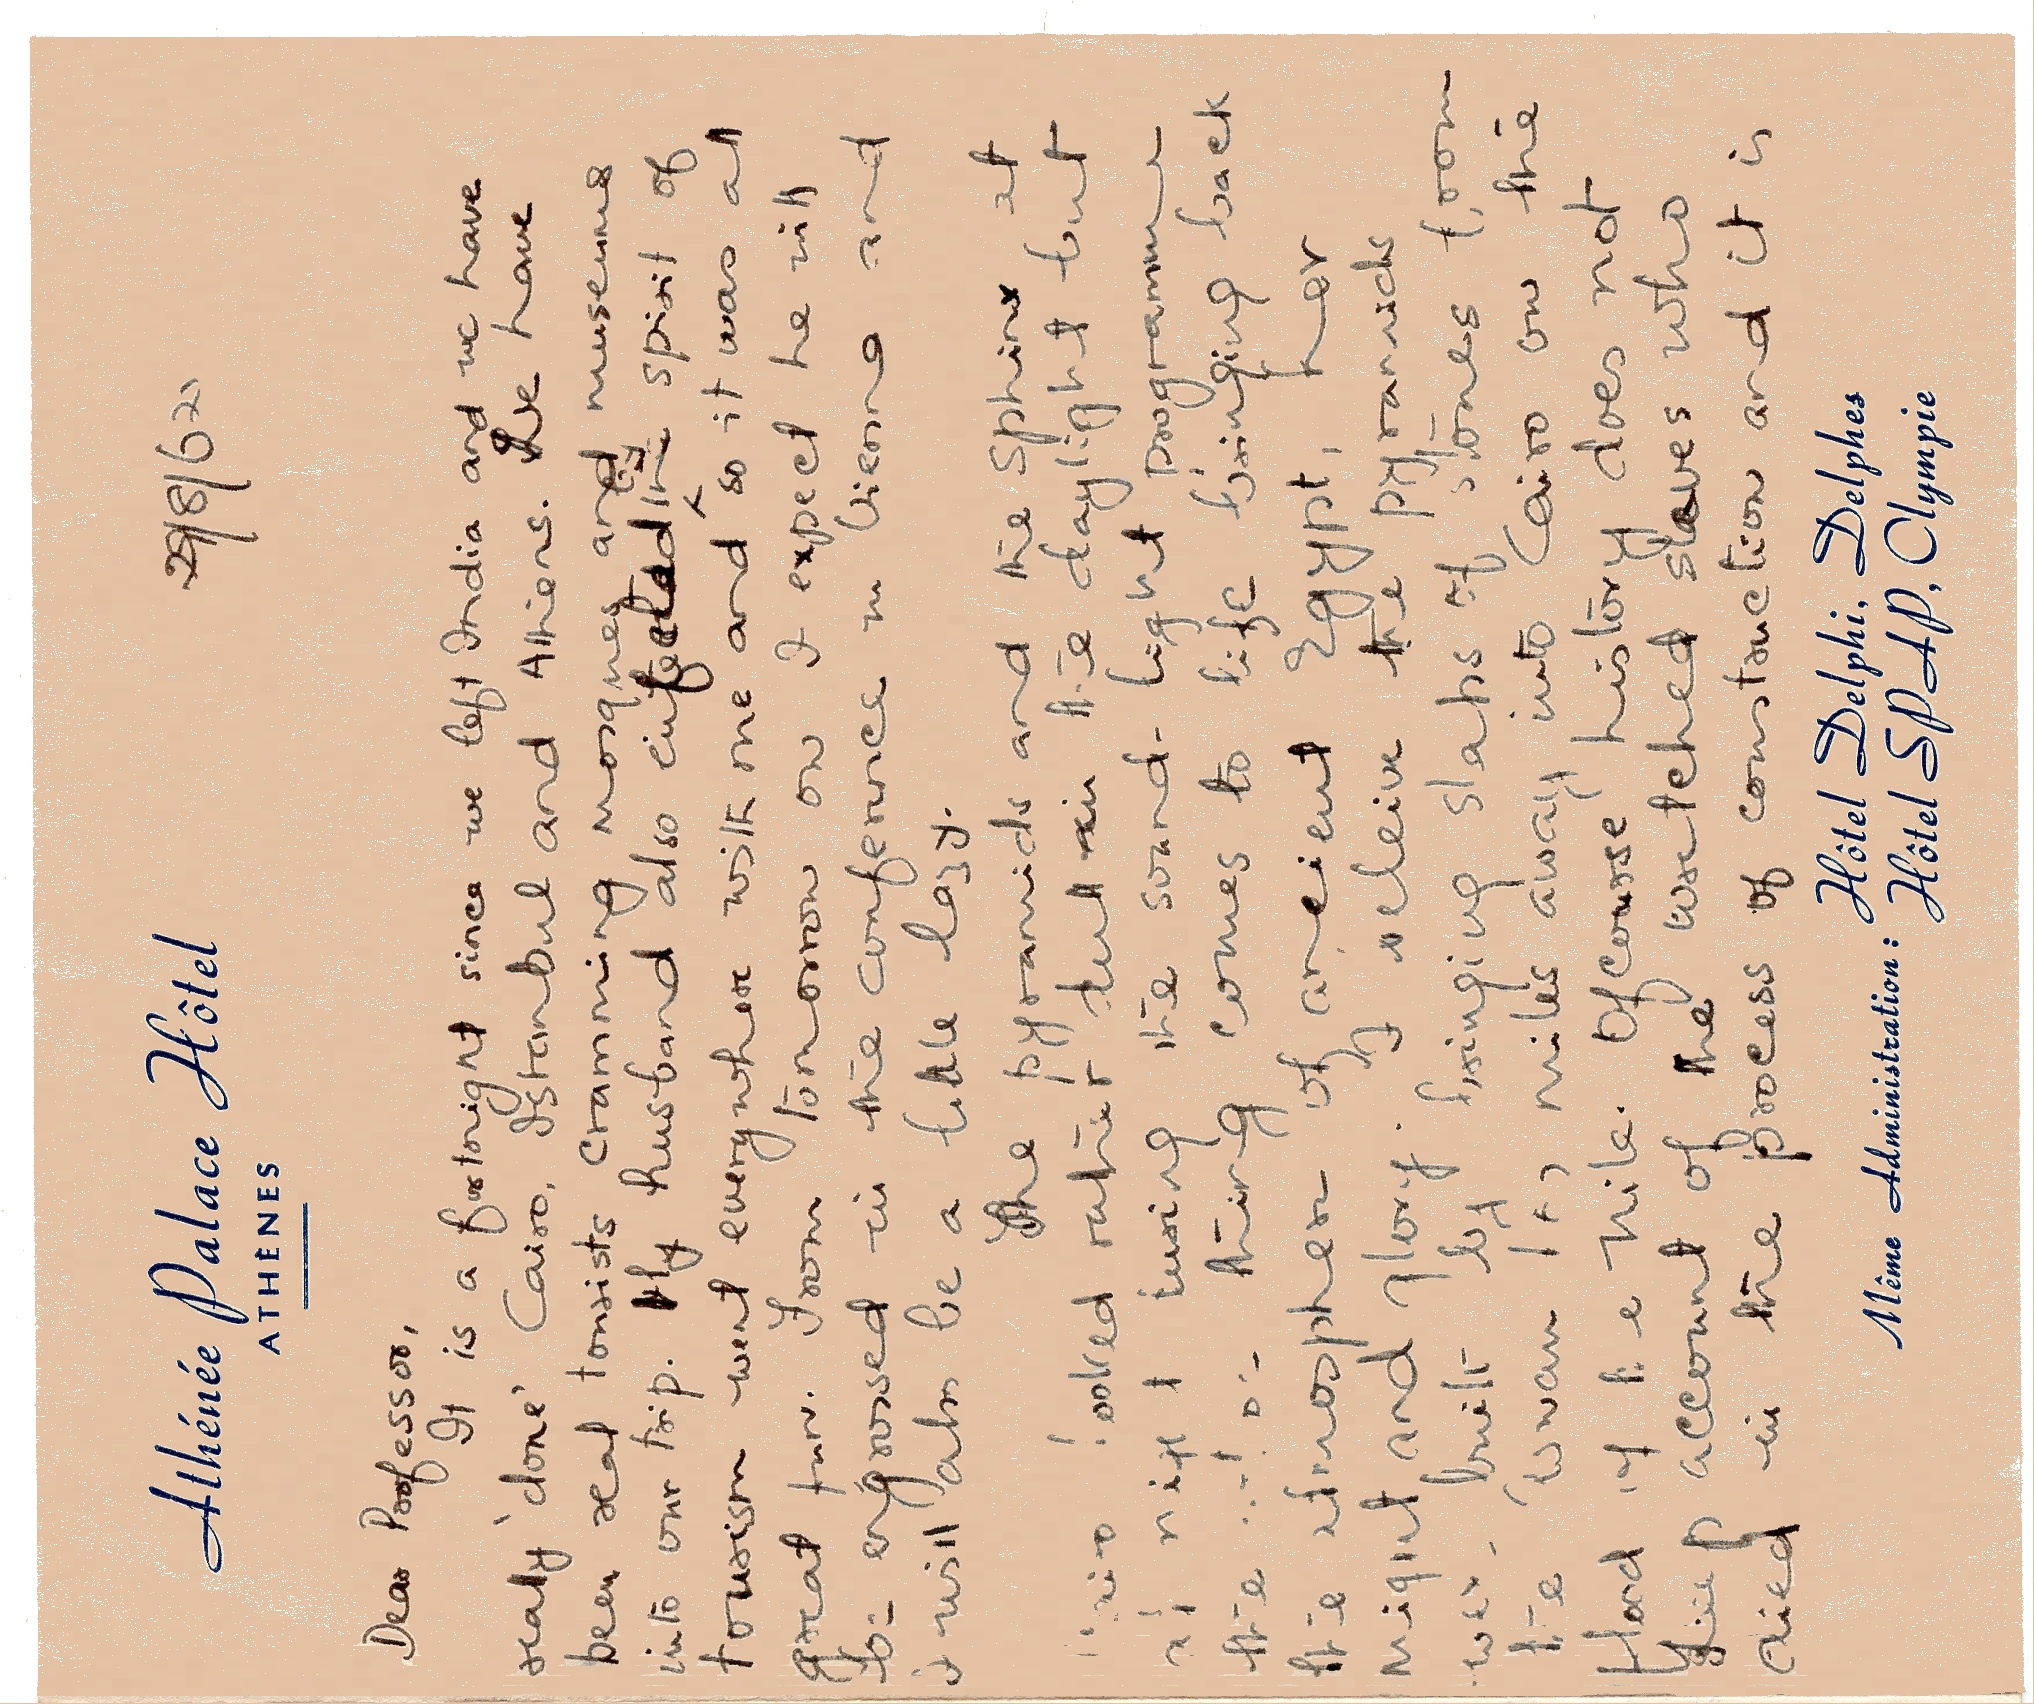 Athénée Palace Hôtel
ATHÈNES
29/8/62
Dear Professor,
It is a fortnight since we left India and we have
really 'done' Cairo, Istanbul and Athens. We have
been real tourists cramming mosques and museums
into our trip. My husband also infected in the spirit of
tourism went everywhere with me and so it was all
great fun. From tomorrow on I expect he will
be engrossed in the conference in Vienna and
I will also be a little lazy.
The pyramids and the Sphinx at
Cairo looked rather dull in the daylight but
at night during the sound-light programme
the thing comes to life bringing back
the atmosphere of ancient Egypt, her
might and glory. I believe the pyramids
were built by bringing slabs of stones from
the Aswan miles away into Cairo on the
the Nile. Of course history does not
keep account of the wretched slaves who
died in the process of construction and it is
Même Administration: Hôtel Delphi, Delphes
Hôtel SPAP, Olympie